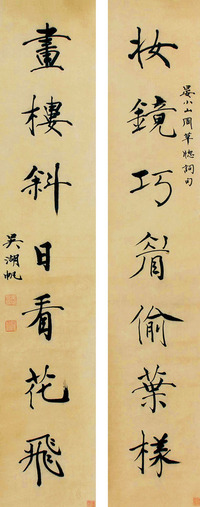 妆鏡巧眉偷葉樣
晏小山周草牕詞句
畫樓斜日看花飛
吳湖帆